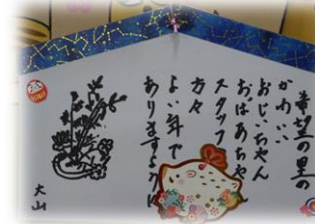 希望の里の
かわいい
おじいちゃん
おばあちゃん
スタッフの
方々
よい年で
ありますように
大山